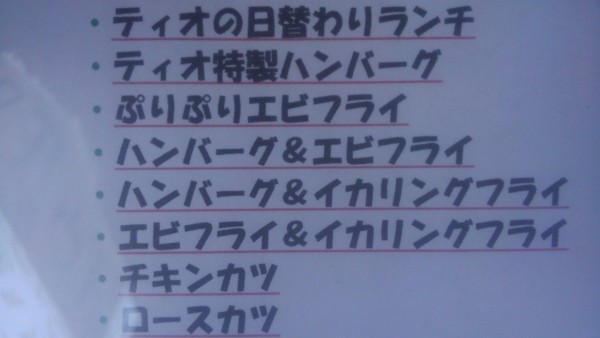 ・ティオの日替わりランチ
・ティオ特製ハンバーグ
・ぷりぷりエビフライ
・ハンバーグ&エビフライ
・ハンバーグ&イカリングフライ
・エビフライ&イカリングフライ
・チキンカツ
・ロースカツ